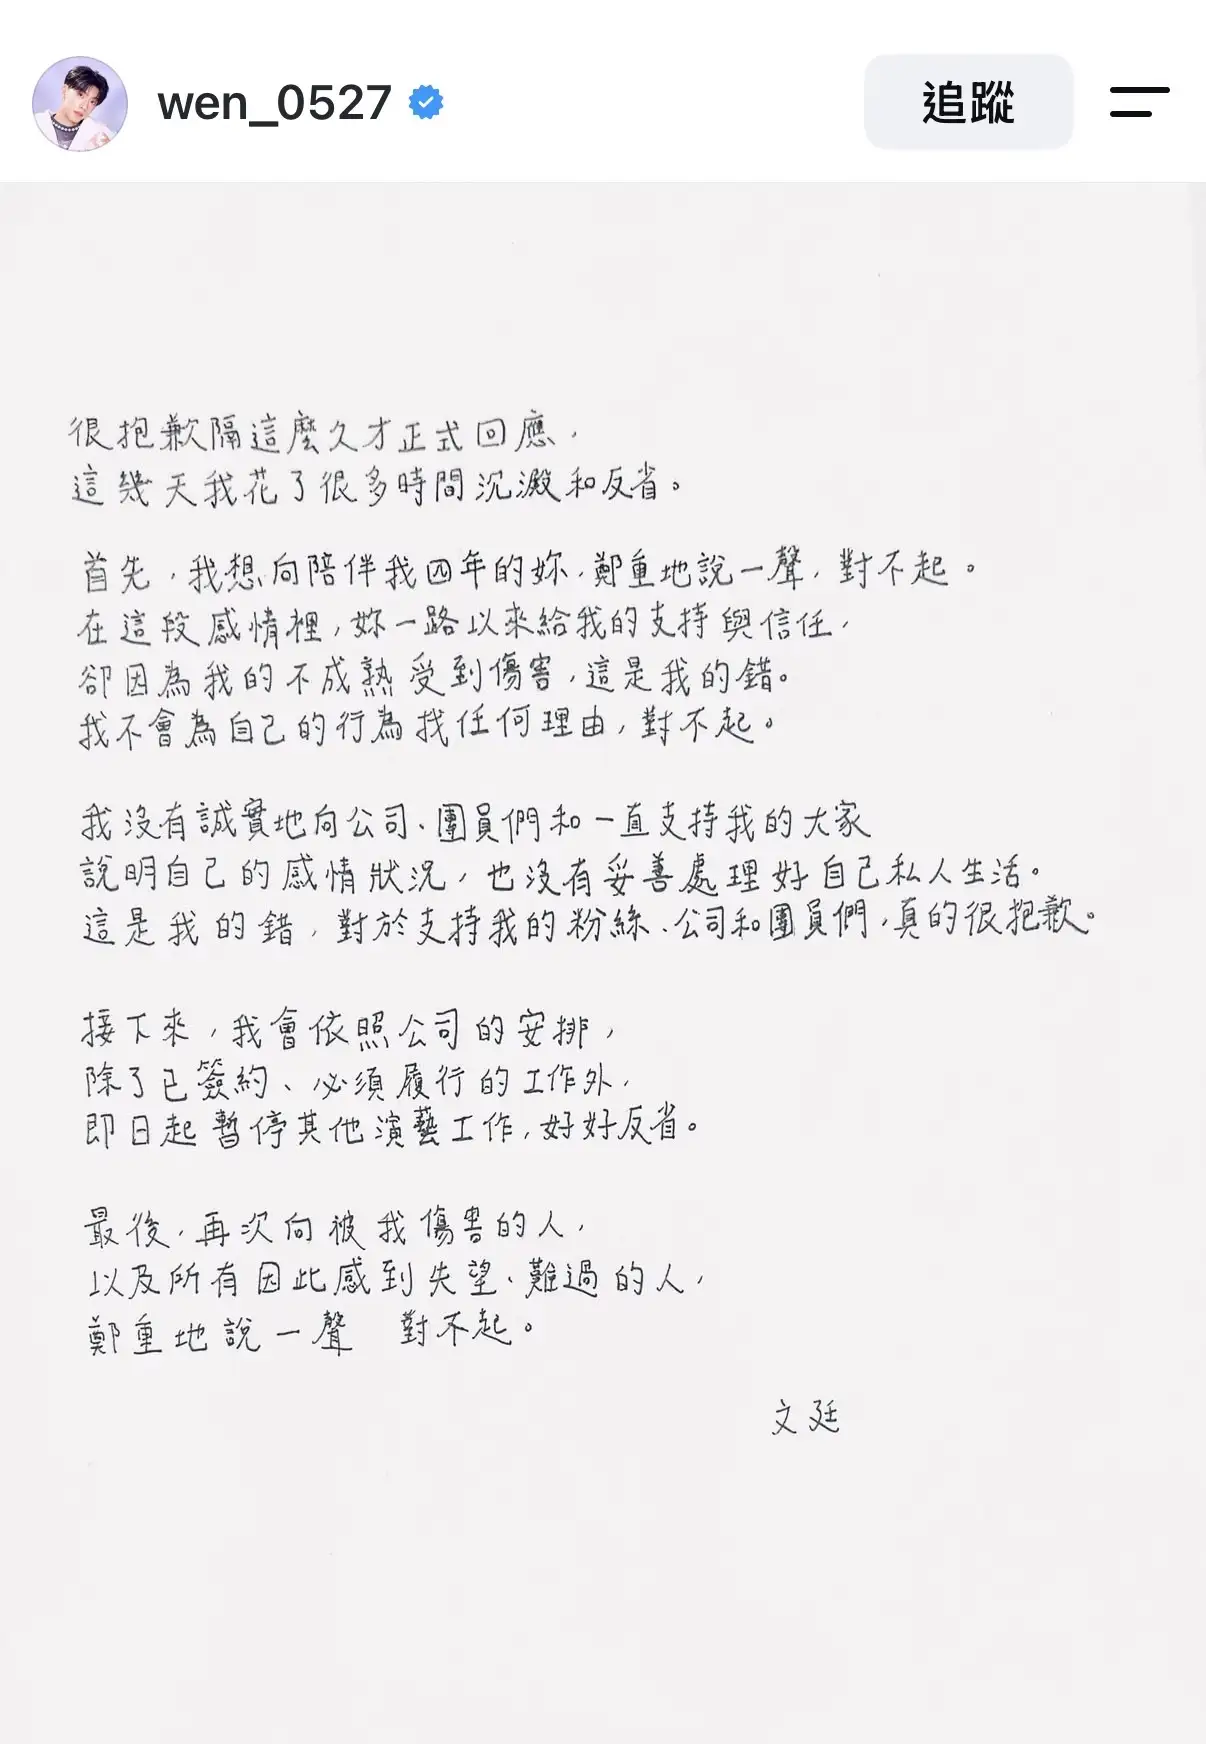 wen_0527
追蹤
很抱歉隔這麼久才正式回應，
這幾天我花了很多時間沉澱和反省。
首先，我想向陪伴我四年的妳，鄭重地說一聲，對不起。
在這段感情裡，妳一路以來給我的支持與信任，
卻因為我的不成熟受到傷害，這是我的錯。
我不會為自己的行為找任何理由，對不起。
我沒有誠實地向公司、團員們和一直支持我的大家
說明自己的感情狀況，也沒有妥善處理好自己私人生活。
這是我的錯，對於支持我的粉絲、公司和團員們，真的很抱歉。
接下來，我會依照公司的安排，
除了已簽約、必須履行的工作外，
即日起暫停其他演藝工作，好好反省。
最後，再次向被我傷害的人，
以及所有因此感到失望、難過的人，
鄭重地說一聲 對不起。
文廷